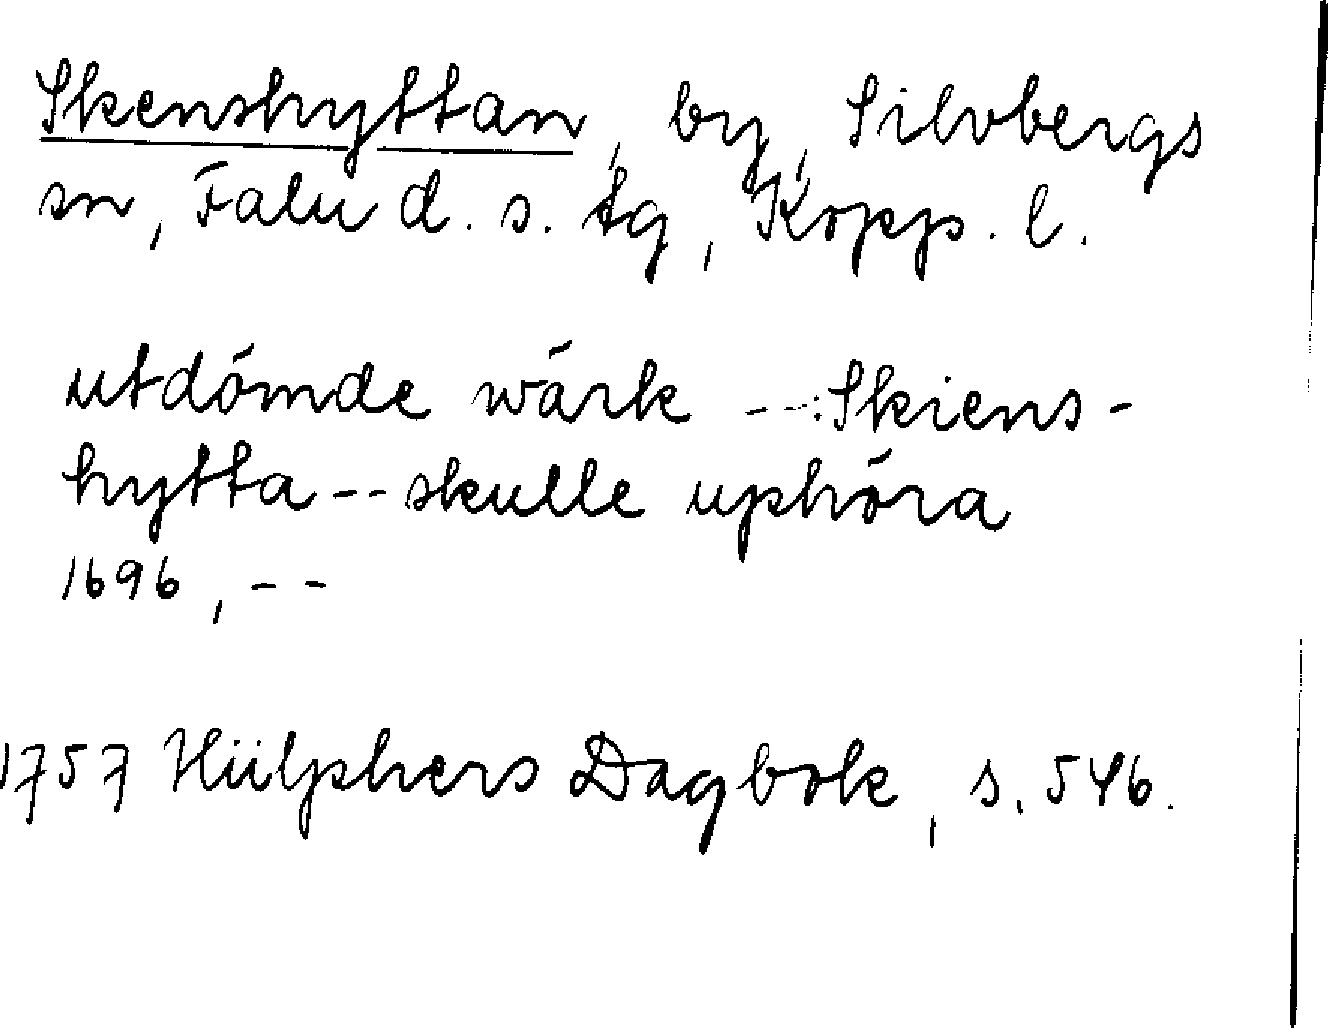 Skenshyttan, by, Silvbergs
sn, Falu d. s. tg, Kopp. l.
utdömde wärk --: Skiens-
hytta -- skulle uphöra
1696, --
1757 Hülphers Dagbok, s. 546.